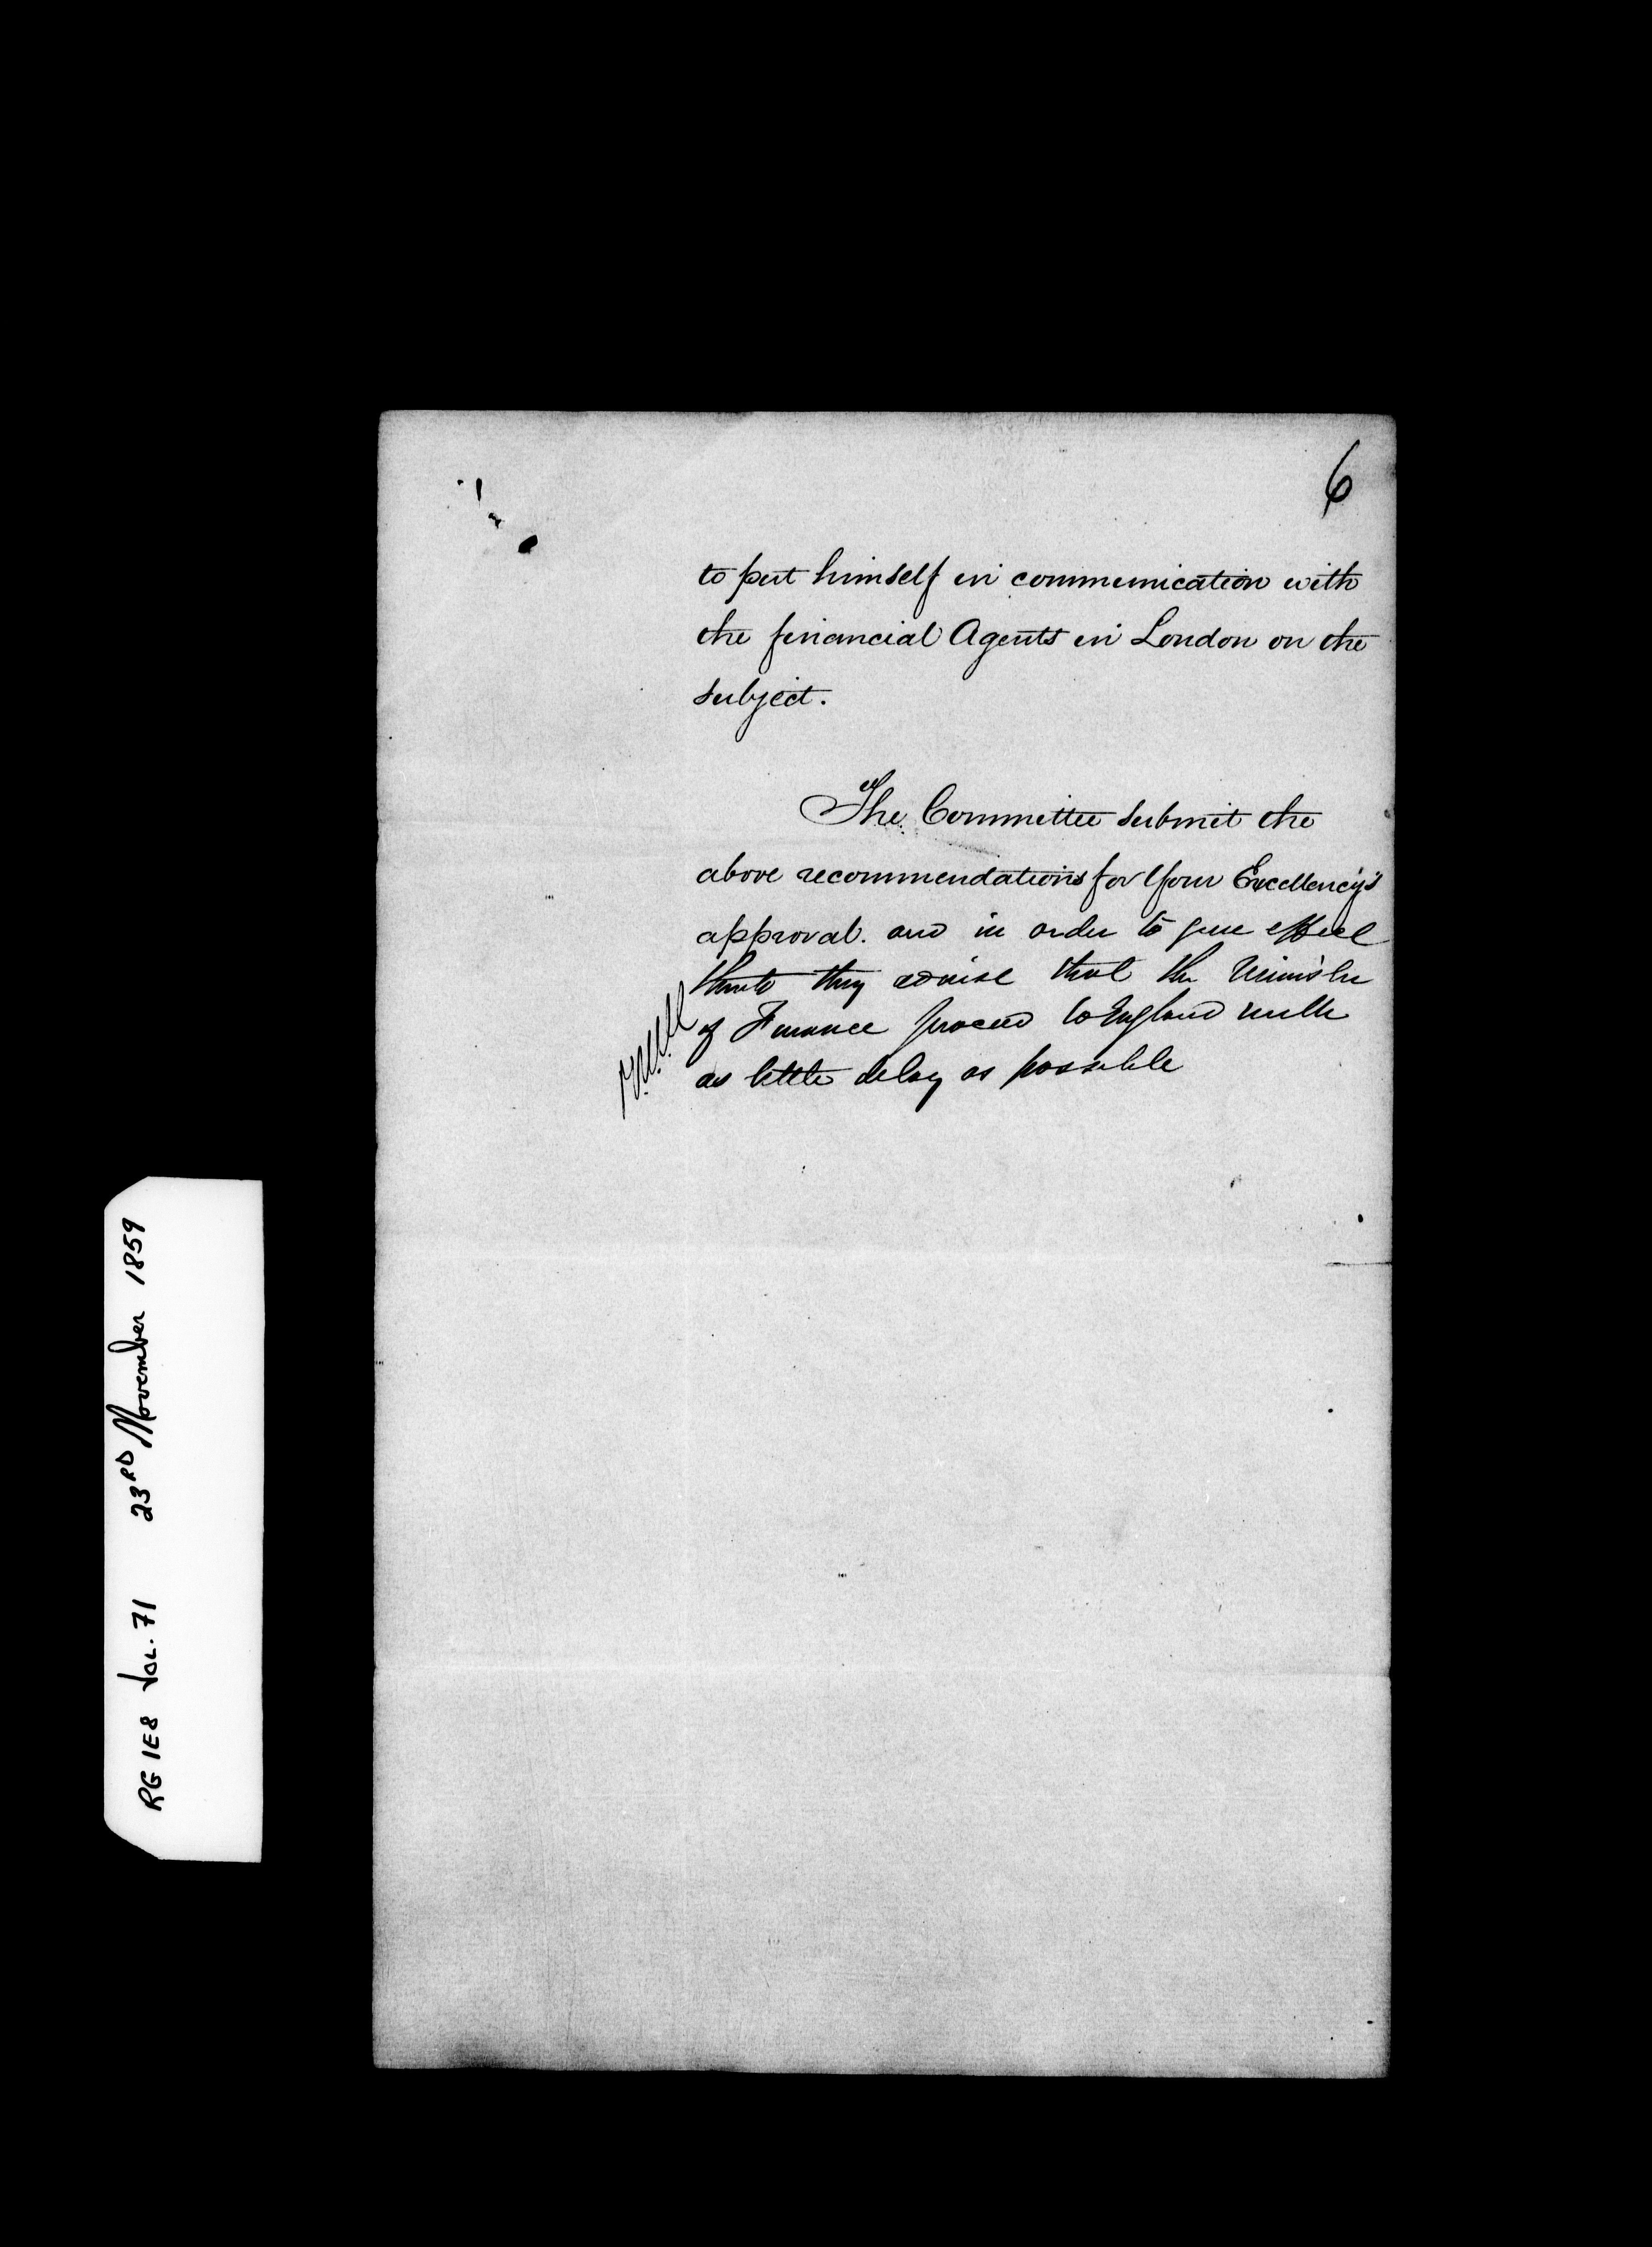 6
to put himself in communication with
the financial Agents in London on the
subject.
The Committee submit the
above recommendations for Your Excellency's
approval. and in order to give effect
thereto they advise that the Minister
of Finance proceed to England with
as little delay as possible
RG 1E8 Vol. 71 23RD November 1859